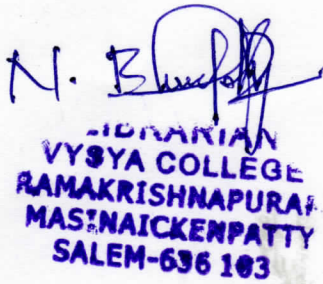 N. B
LIBRARIAN
VYSYA COLLEGE
RAMAKRISHNAPURAM
MASINAICKENPATTY
SALEM-636 103